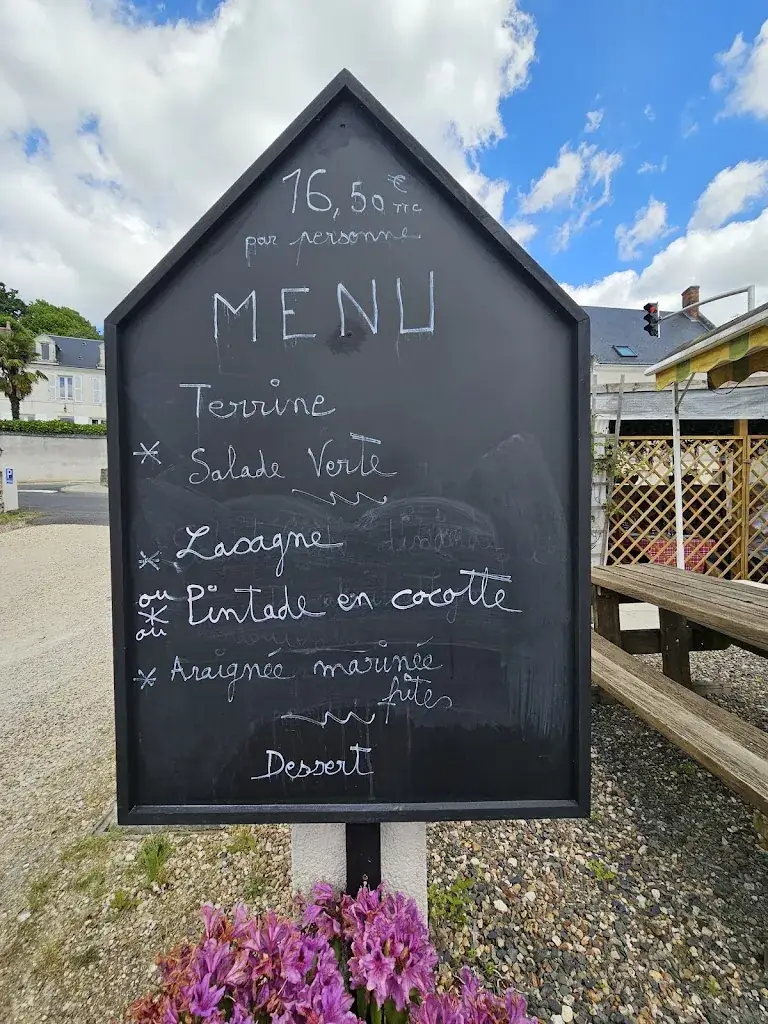 16,50€ TTC
par personne
MENU
Terrine
* Salade Verte
* Lasagne
ou
* Pintade en cocotte
ou
* Araignée marinée
frites
Dessert